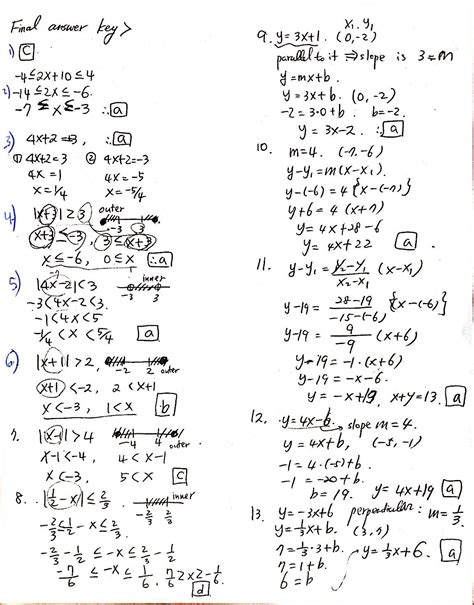 Final answer key >
1) C
-4≤2x+10≤4
2) -14≤2x≤-6.
-7≤x≤-3 ∴ a
3) 4x+2=3, ∴ a
① 4x+2=3 ② 4x+2=-3
4x=1 4x=-5
x=1/4 x=-5/4
4) |x+3|≥3 outer
-3 3
x+3≤-3, 3≤x+3
x≤-6, 0≤x ∴ a
5) |4x-2|<3 inner
-3 3
-3<4x-2<3
-1<4x<5
-1/4<x<5/4 a
6) |x+1|>2, -2 2 outer
x+1<-2, 2<x+1
x<-3, 1<x b
7. |x-1|>4 -4 4 outer
x-1<-4, 4<x-1
x<-3, 5<x C
8. |1/2-x|≤2/3 inner
-2/3 2/3
-2/3≤1/2-x≤2/3
-2/3-1/2≤-x≤2/3-1/2
-7/6≤-x≤1/6, 7/6≥x≥-1/6
d
x₁ y₁
9. y=3x+1. (0,-2)
parallel to it ⇒ slope is 3=m
y=mx+b.
y=3x+b. (0,-2)
-2=3·0+b. b=-2.
y=3x-2. ∴ a
10. m=4. (-7,-6)
y-y₁=m(x-x₁).
y-(-6)=4{x-(-7)}
y+6=4(x+7)
y=4x+28-6
y=4x+22 a
11. y-y₁=y₂-y₁/x₂-x₁ (x-x₁)
y-19=28-19/-15-(-6) {x-(-6)}
y-19=9/-9 (x+6)
y-19=-1·(x+6)
y-19=-x-6.
y=-x+13, x+y=13. a
12. y=4x-6 slope m=4.
y=4x+b, (-5,-1)
-1=4·(-5)+b
-1=-20+b
b=19. y=4x+19 a
13. y=-3x+6 perpendicular: m=1/3.
y=1/3x+b. (3,7)
7=1/3·3+b. y=1/3x+6. a
7=1+b.
6=b